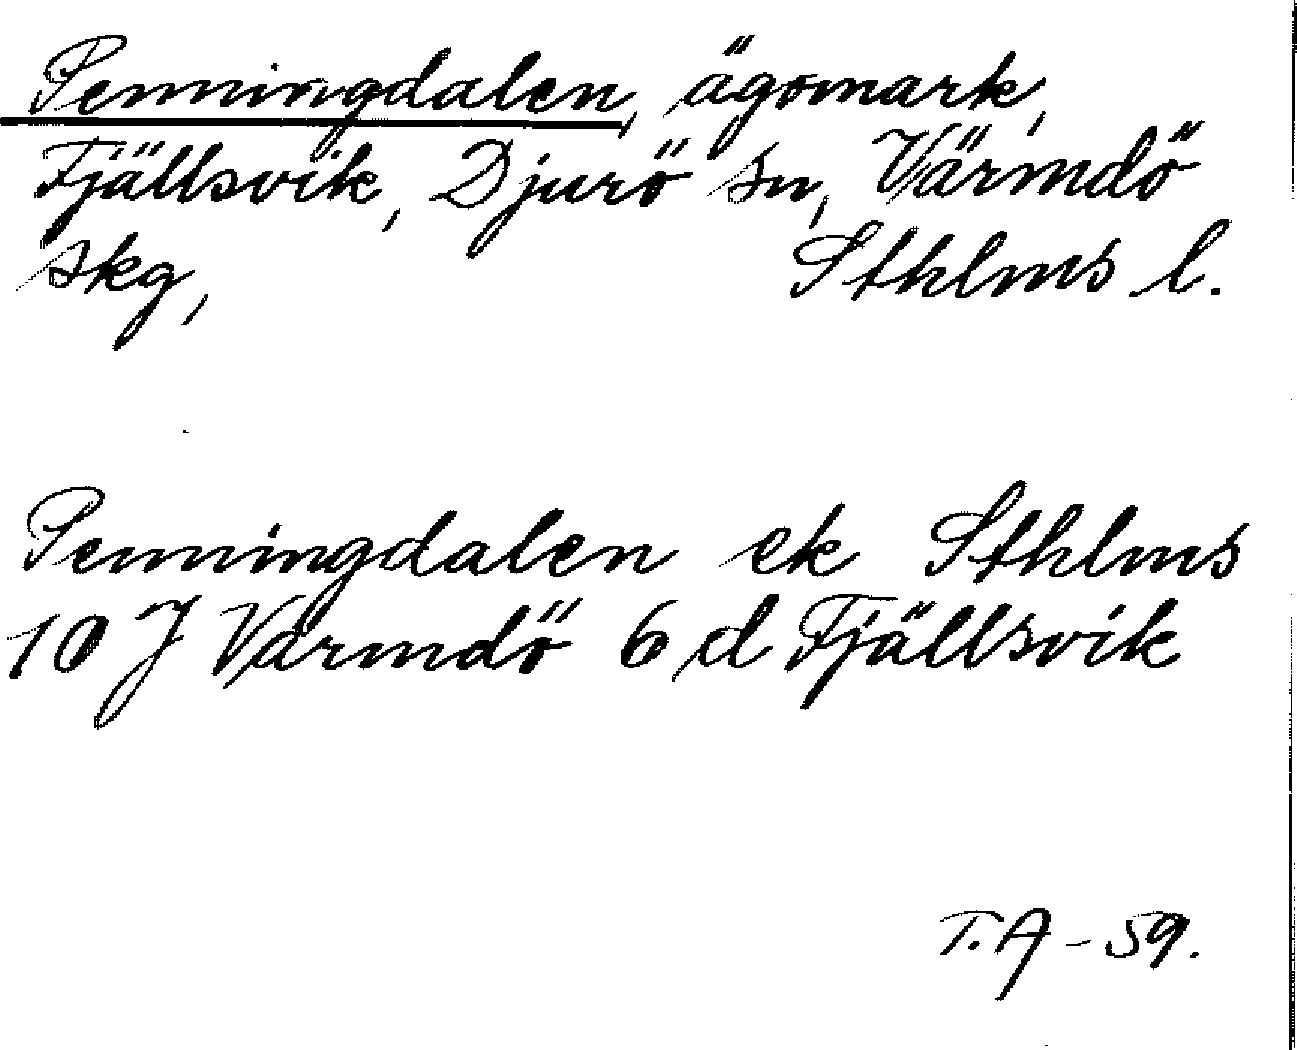 Penningdalen, ägomark,
Fjällsvik, Djurö sn, Värmdö
skg, Sthlms l.
Penningdalen ek Sthlms
10 J Värmdö 6 d Fjällsvik
T.A - 59.